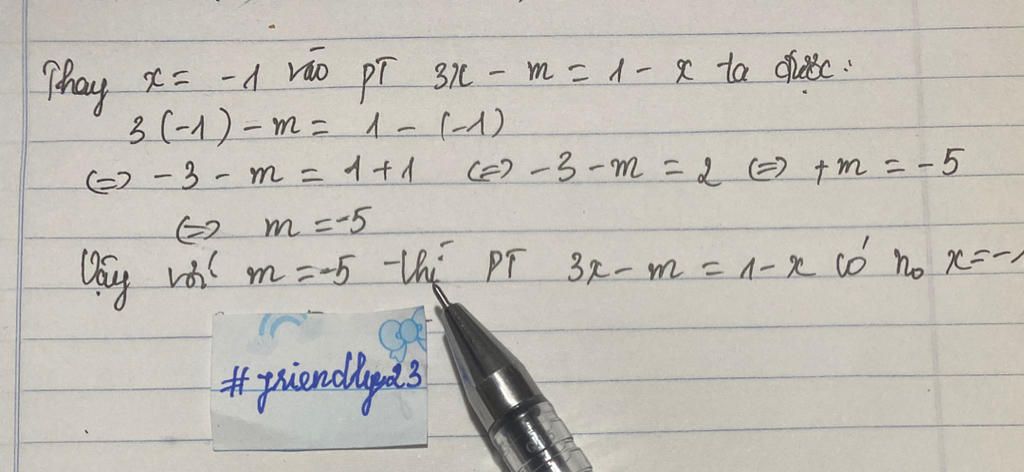 Thay x = -1 vào PT 3x - m = 1 - x ta được:
3(-1) - m = 1 - (-1)
<=> -3 - m = 1 + 1 <=> -3 - m = 2 <=> +m = -5
<=> m = -5
Vậy với m = -5 thì PT 3x - m = 1 - x có no x = -1
#friendly23